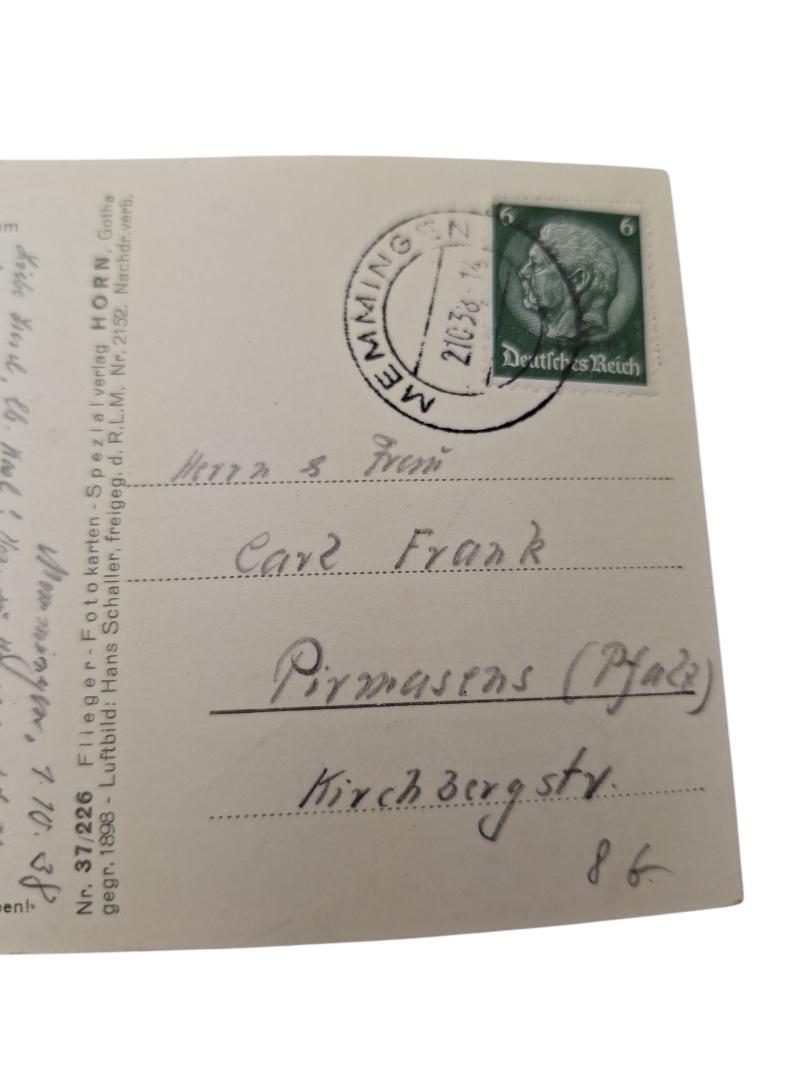 6 6
Deutsches Reich
MEMMINGEN
2.10.38.-14
Herrn & Frau
Carl Frank
Pirmasens (Pfalz)
Kirchbergstr.
86
Nr. 37/226 Flieger-Fotokarten-Spezialverlag HORN, Gotha
gegr. 1898 - Luftbild: Hans Schaller, freigeg. d. R.L.M. Nr. 2152. Nachdr. verb.
Memmingen, 1.10.38